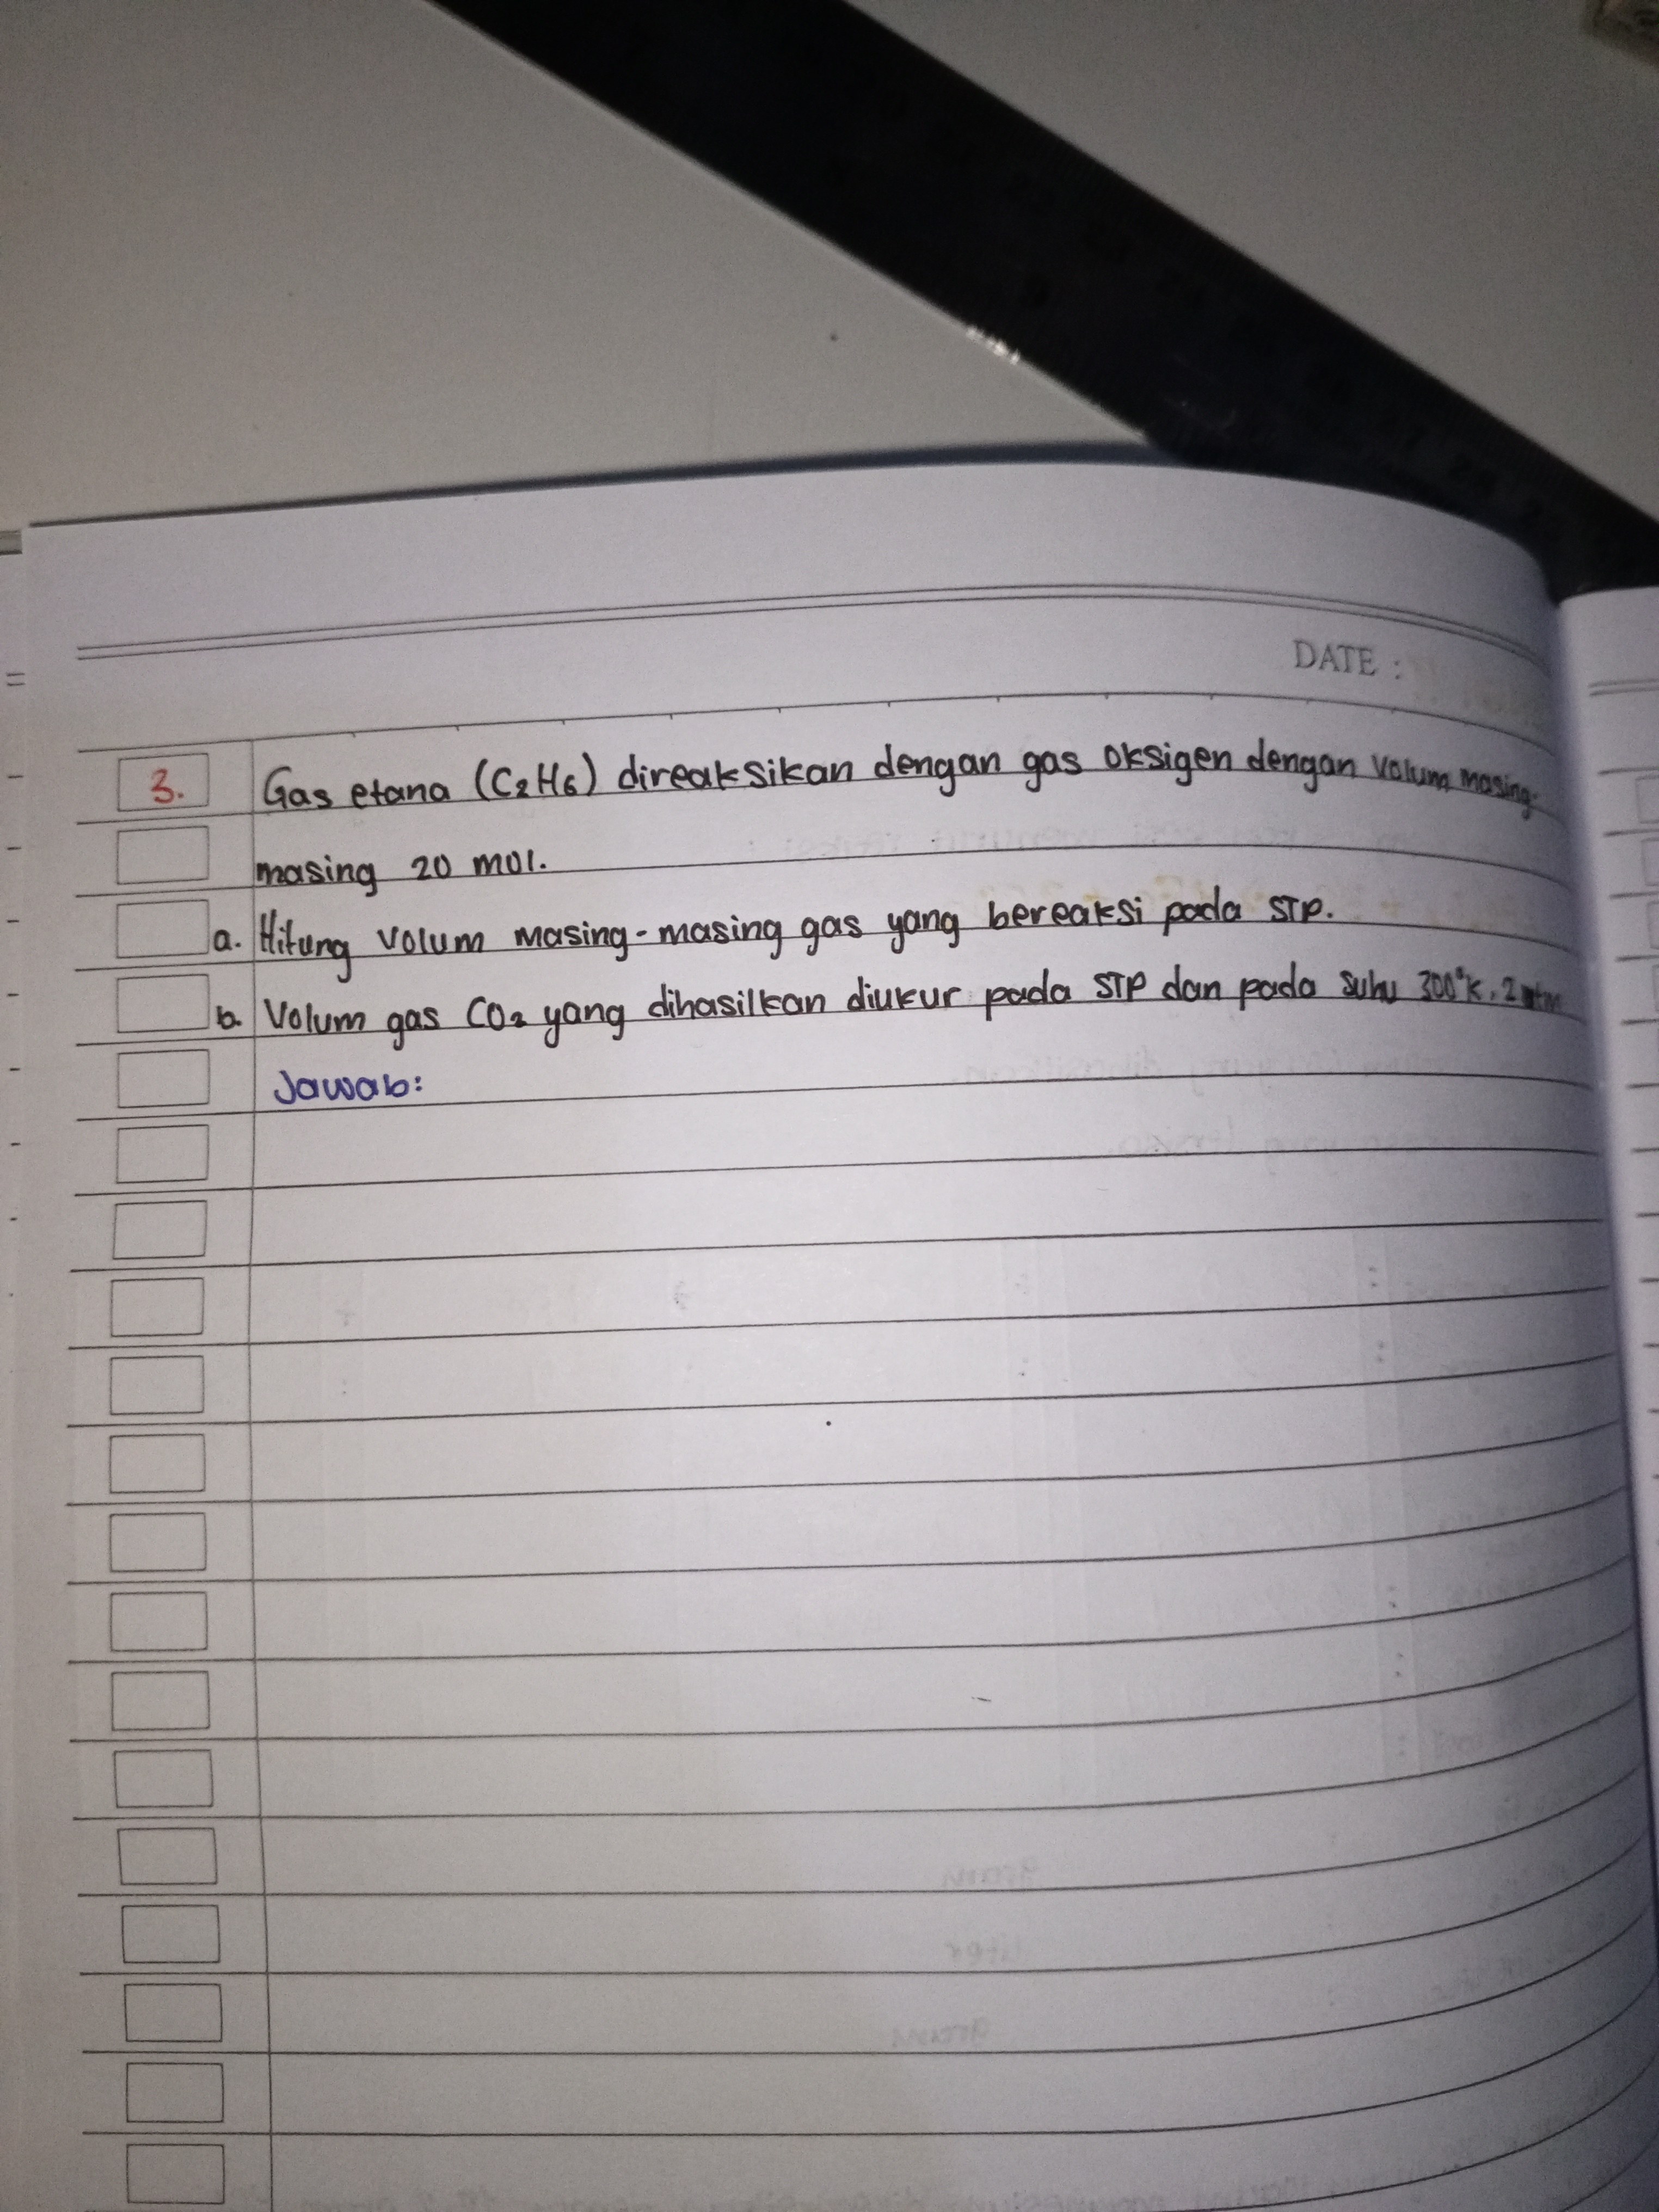 DATE :
3. Gas etana (C₂H₆) direaksikan dengan gas oksigen dengan volum masing-
masing 20 mol.
a. Hitung volum masing-masing gas yang bereaksi pada STP.
b. Volum gas CO₂ yang dihasilkan diukur pada STP dan pada suhu 300°K, 2 atm
Jawab: